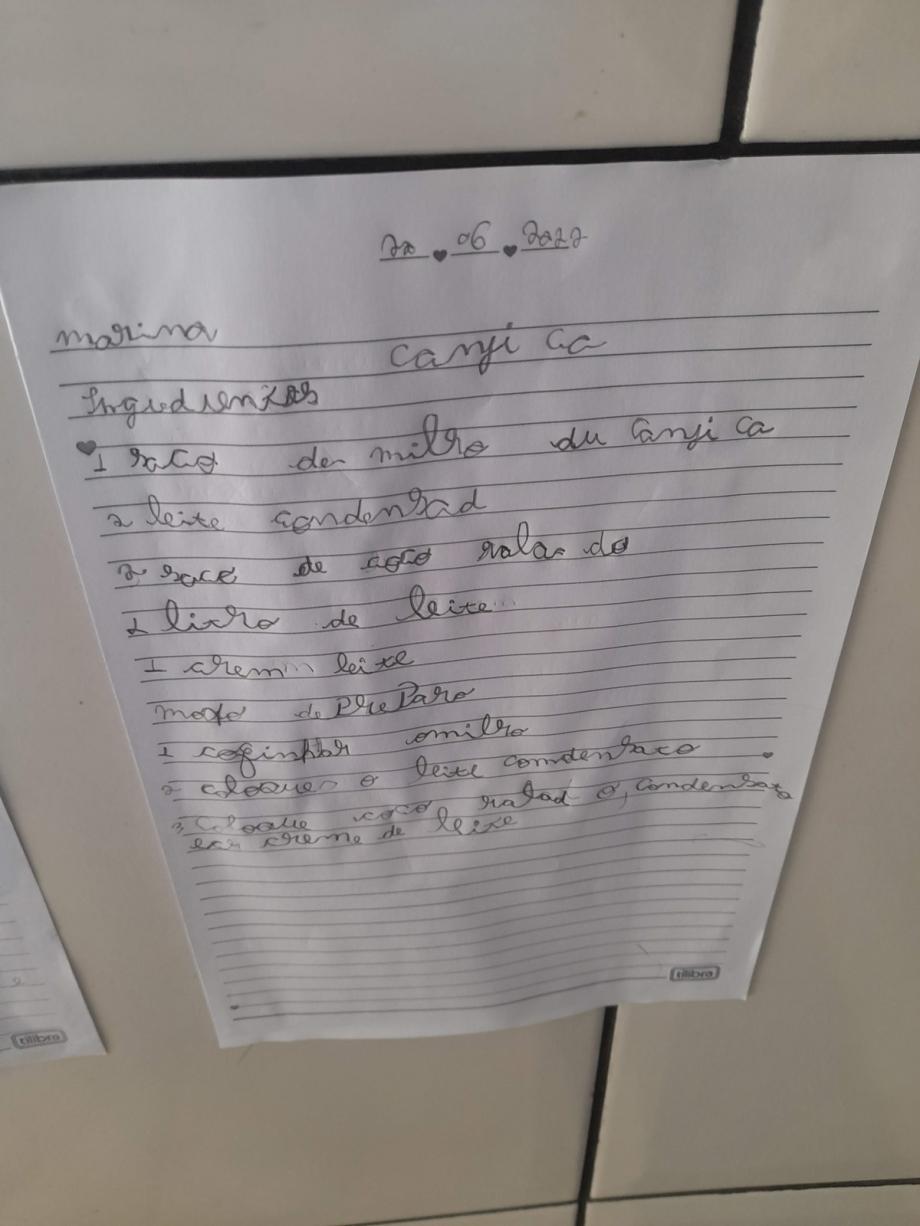 20 06 2022
marina
canji ca
Ingredientes
1 saco de milho du canji ca
2 leite condensad
2 saco de coco rala do
1 litro de leite
1 crem leite
modo de PrePaRo
1 coginhar omilho
2 coloque o leite comdensaco
3 coloque coco ralad o, condensato
e creme de leite
tilibra
tilibra